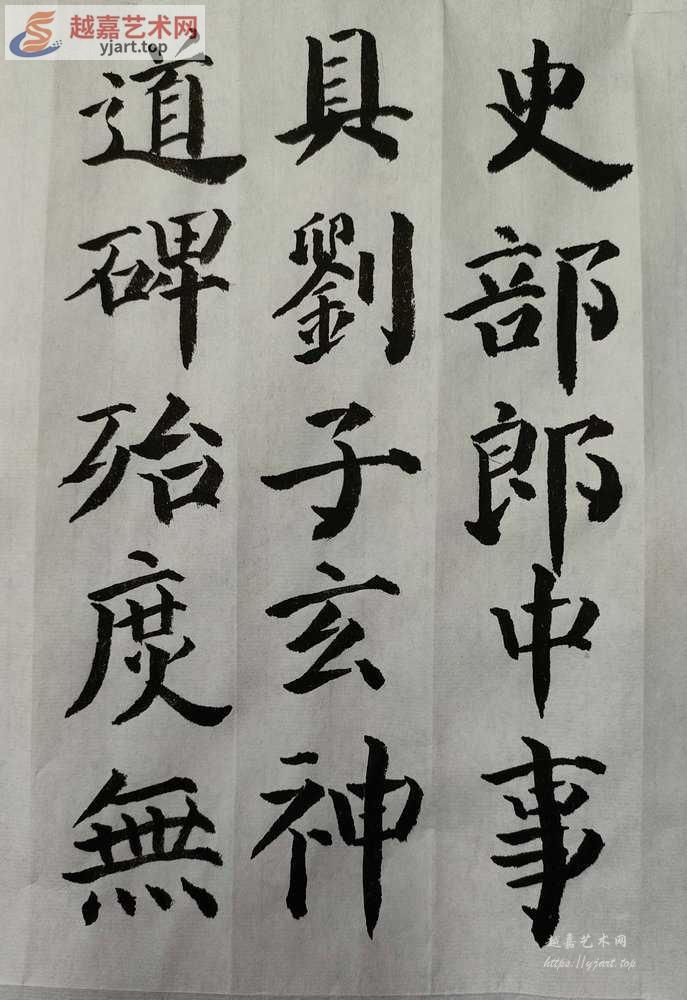 越嘉艺术网
yjart.top
史部郎中事
具劉子玄神
道碑殆庻無
越嘉艺术网
https://yjart.top